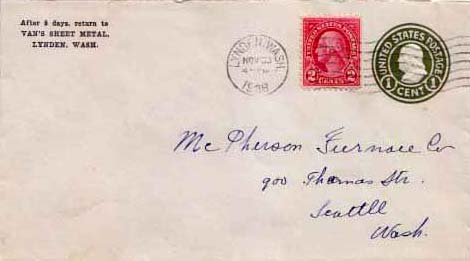 After 5 days, return to
VAN'S SHEET METAL,
LYNDEN, WASH.
LYNDEN, WASH.
NOV
1938
2 CENTS 2
UNITED STATES POSTAGE
1 CENT 1
McPherson Furnace Co
900 Thomas Str.
Seattll
Wash.